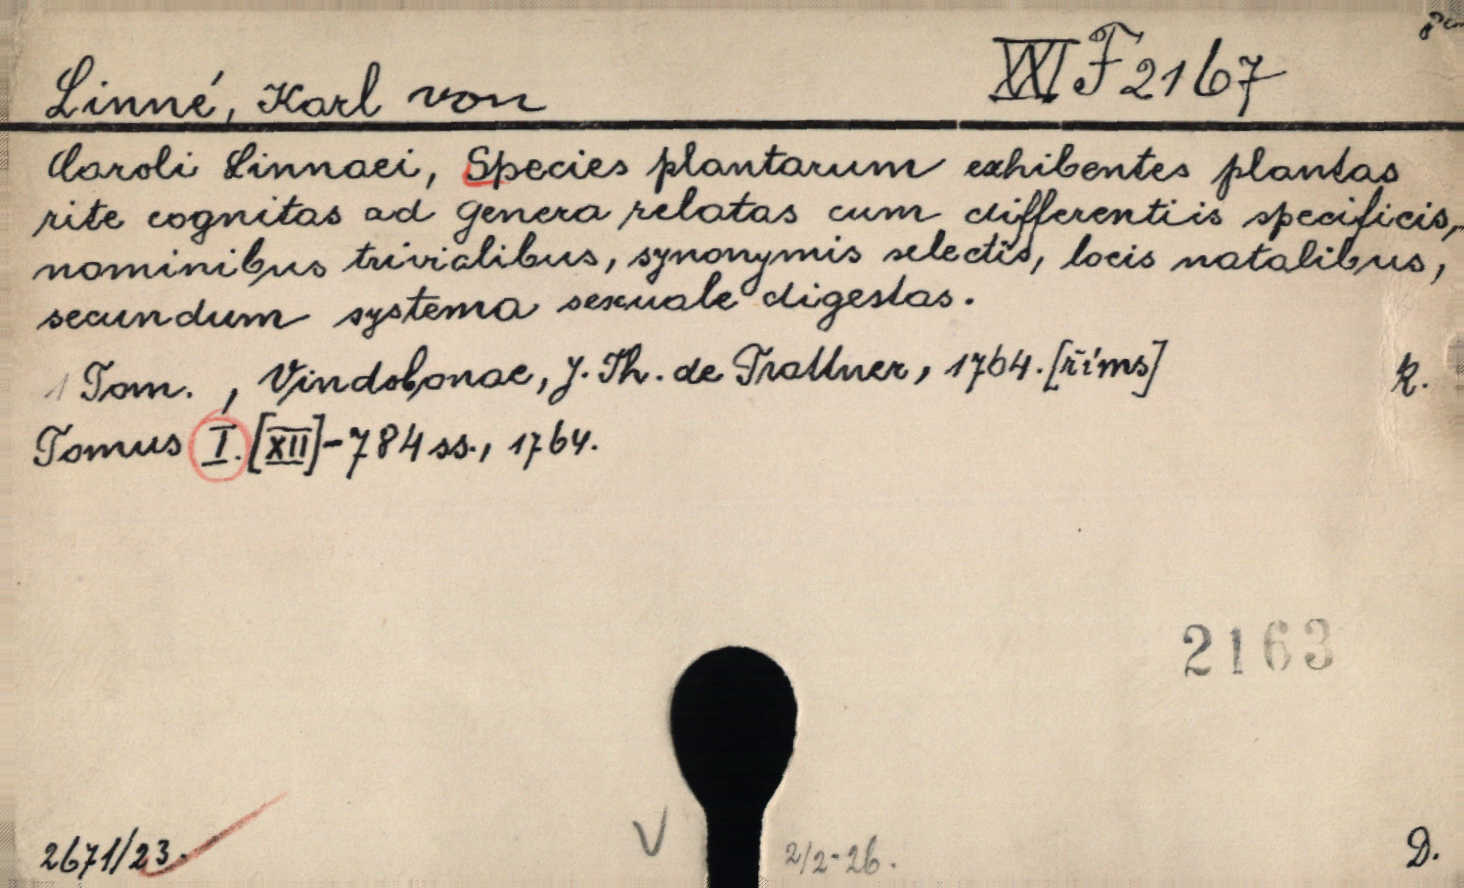 Linné, Karl von
XXI F 2167
Caroli Linnaei, Species plantarum exhibentes plantas
rite cognitas ad genera relatas cum differentiis specificis,
nominibus trivialibus, synonymis selectis, locis natalibus,
secundum systema sexuale digestas.
1 Tom. , Vindobonae, J. Th. de Trattner, 1764. [říms]
R.
Tomus I. [XII]-784 ss., 1764.
2163
2671/23.
V
2/2-26.
D.